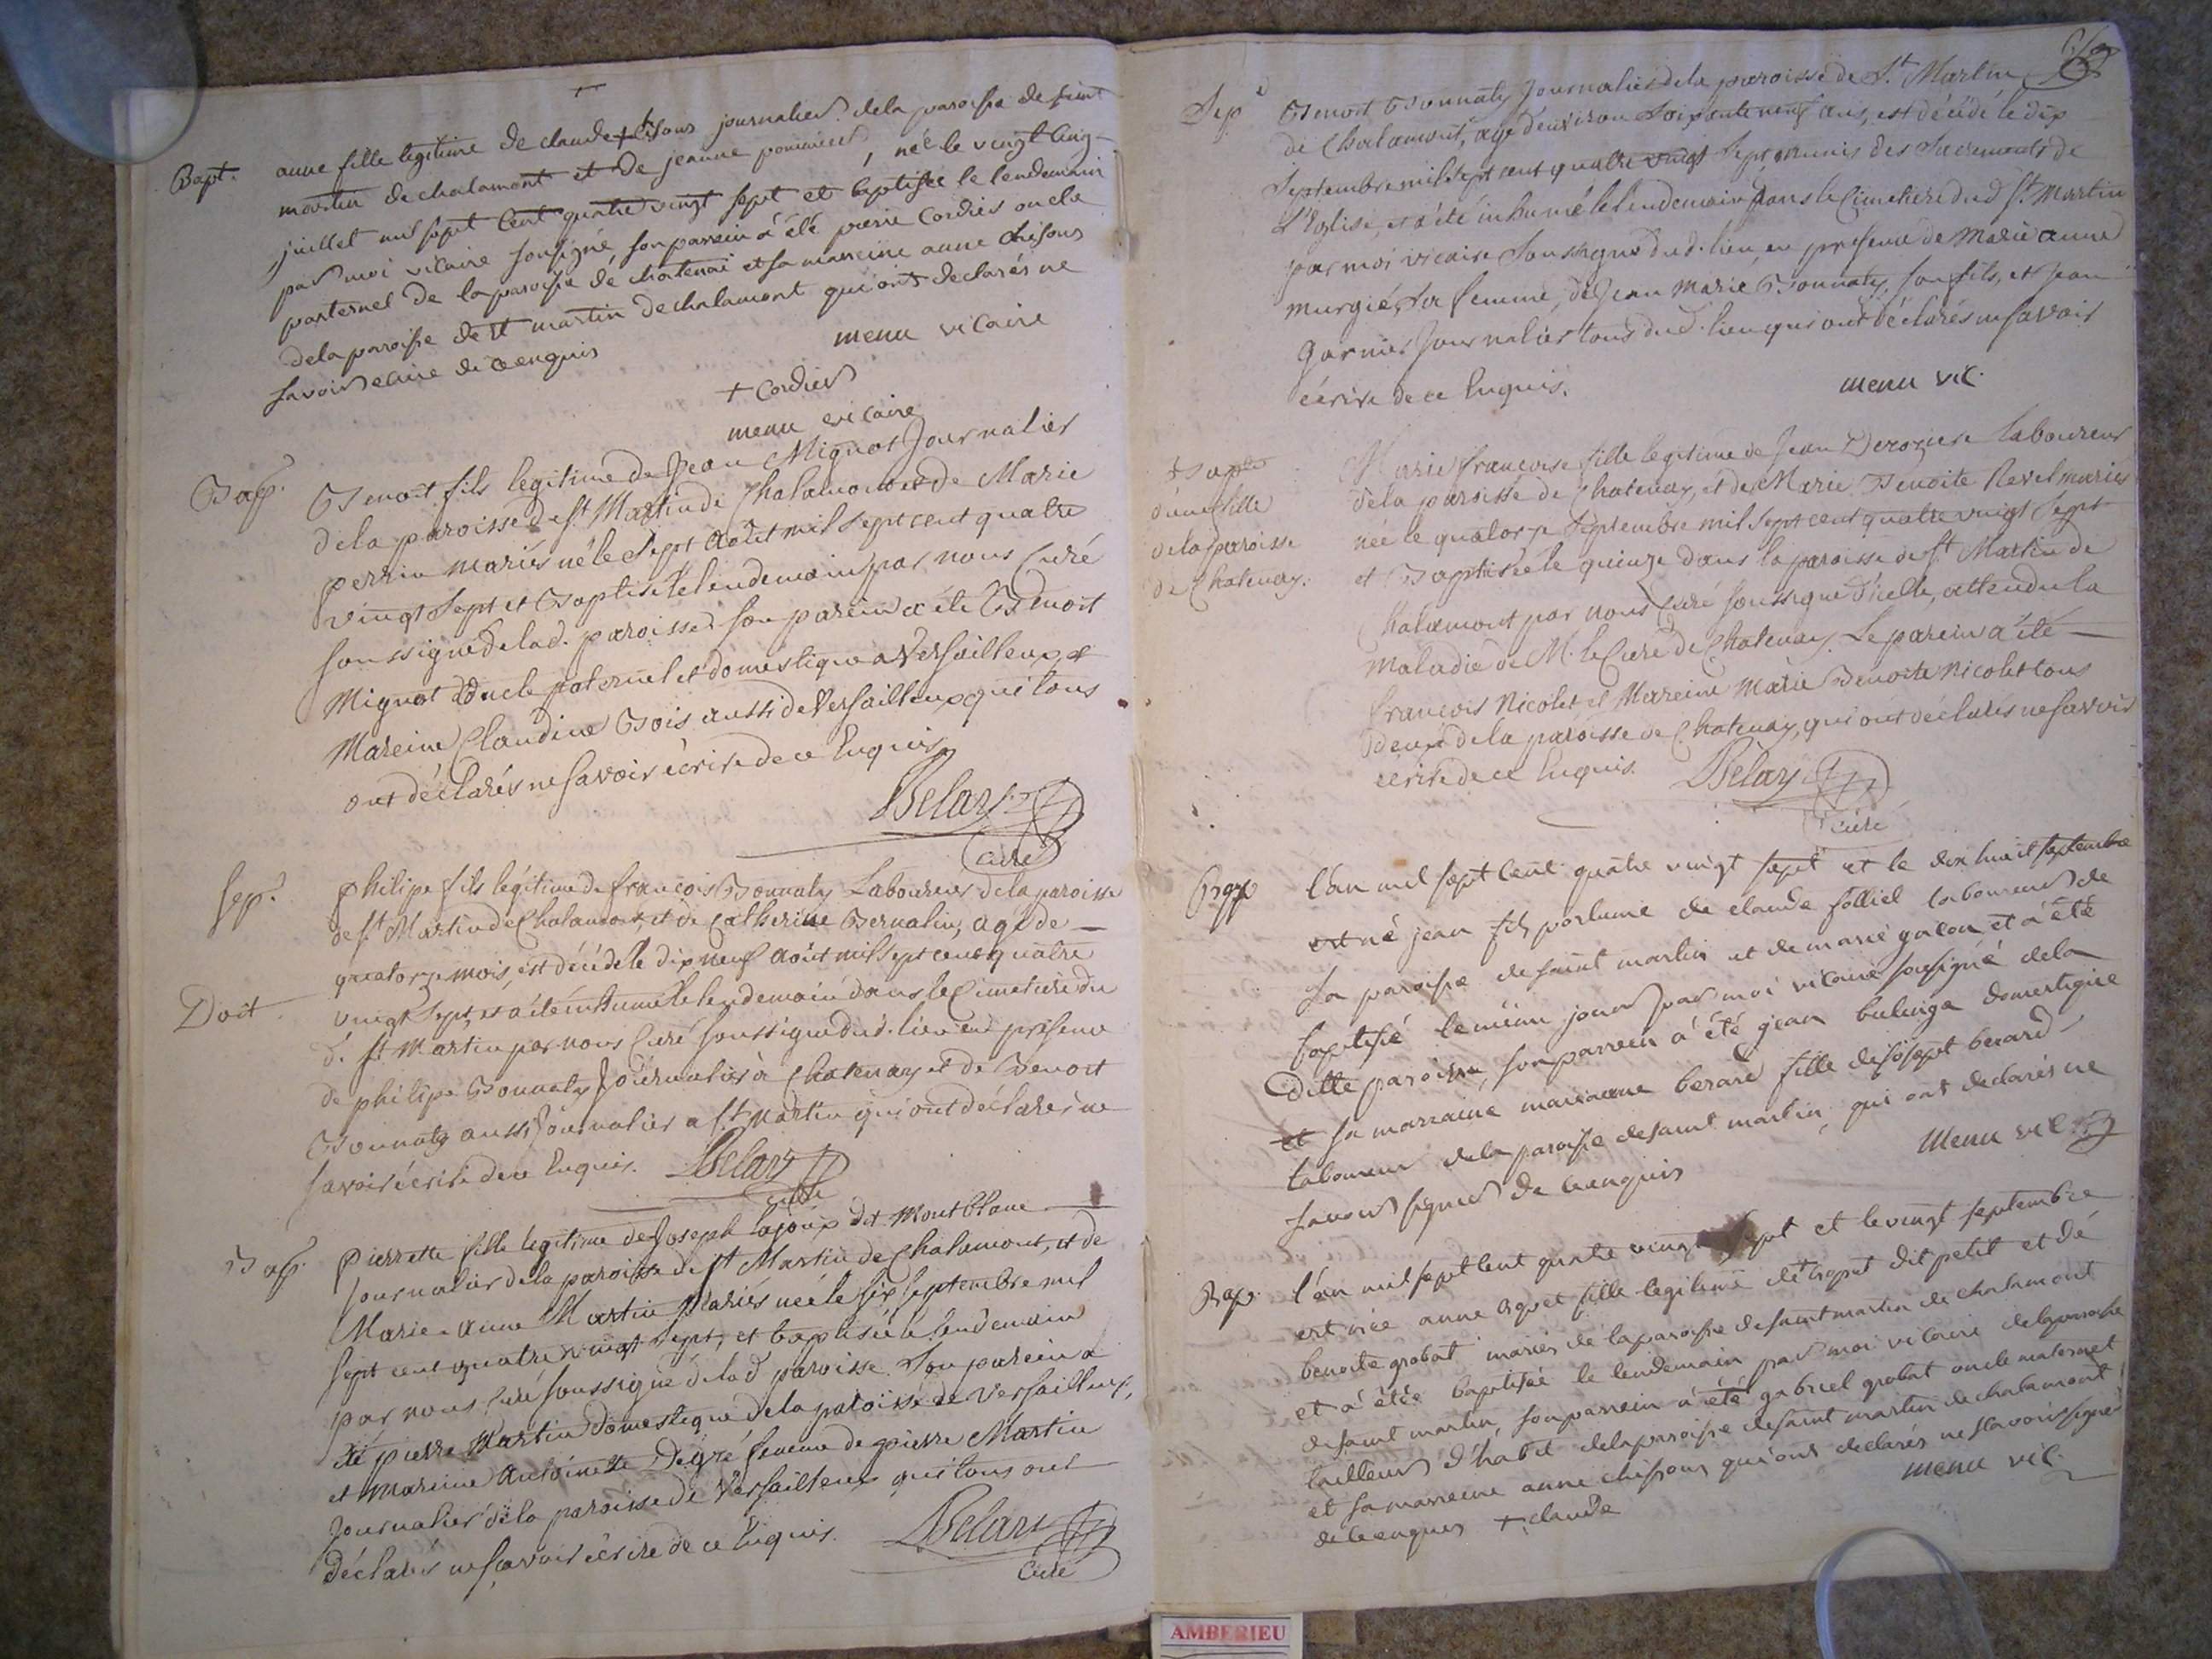 Bapt. anne fille legitime de claude + journalier dela paroisse de saint
martin de chalamont et de jeanne pommier, née le vingt cinq
juillet mil sept cent quatre vingt sept et baptisée le lendemain
par moi vicaire sousigné son parrein à été pierre Cordier oncle
parternel de la paroisse de chatenai et sa marreine anne chisour
dela paroisse de st martin de chalamont qui ont declarés ne
savoir ecrire de ce enquis menu vicaire
+ Cordier
menu vicaire
Bap. Benoit fils legitime de Jean Mignot Journalier
dela paroisse de St. Martin de Chalamont et de Marie
perrin mariés né le sept Août mil sept cent quatre
vingt sept et Baptisé le lendemain par nous Curé
soussigné de lad. paroisse. son parein a été Benoit
Mignot oncle paternel et domestique a Versailleux et
Mareine Claudine Bois aussi de Versailleux qui tous
ont déclarés ne savoir écrire de ce Enquis
Belay
Curé
Sep. Philipe fils légitime de françois Bonnaty Laboureur dela paroisse
de St Martin de Chalamont, et de Catherine Bernalin, agé de
quatorze mois, est décédé le dix neuf août mil sept cent quatre
Doit vingt sept, et a été inhumé le lendemain dans le Cimetière du
d. St Martin par nous Curé soussigné dud. lieu en présence
de philipe Bonnaty Journalier à Chatenay et de Benoit
Bonnaty aussi Journalier a St Martin qui ont déclarés ne
savoir écrire de ce Enquis. Belay
curé
Bap. Pierrette fille legitime de Joseph Lajoux dit Montblanc
Journalier dela paroisse de St Martin de Chalamont, et de
Marie-anne Martin mariés née le six septembre mil
sept cent quatre vingt sept, et baptisée le lendemain
par nous Curé soussigné de lad paroisse. Son parein a
été pierre Martin Domestique de la paroisse de Versailleux,
et Mareine Antoinette Degré femme de pierre Martin
Journalier de la paroisse de Versailleux qui tous ont
déclarés ne savoir écrire de ce Enquis. Belay
Curé
Sep. Benoit Bonnaty Journalier de la paroisse de St. Martin
de Chalamont, agé d'environ soixante neuf ans, est décédé le dix
Septembre mil sept cent quatre vingt sept munis des Sacrements de
l'Eglise, et a été inhumé le lendemain dans le Cimetiere dud St. Martin
par moi vicaire Soussigné dud. lieu, en presence de Marie anne
Murgié, sa femme, de Jean Marie Bonnaty, son fils, et Jean
Garnier Journalier tous dud. lieu qui ont déclarés ne savoir
écrire de ce Enquis. menu vic.
Bapte
d'une fille
de la paroisse
de Chatenay.
Marie françoise fille legitime de Jean Deroziere laboureur
dela paroisse de Chatenay, et de Marie Benoite Revel mariés
née le quatorze septembre mil sept cent quatre vingt sept
et Baptisée le quinze dans la paroisse de St Martin de
Chalamont par nous Curé soussigné d'icelle, attendu la
maladie de M. le Curé de Chatenay. Le parein a été
françois Nicolet et Mareine Marie Benoite Nicolet tous
deux dela paroisse de Chatenay, qui ont déclarés ne savoir
écrire de ce Enquis. Belay
curé
Bap l'an mil sept cent quatre vingt sept et le dix huit septembre
est né jean fils postume de claude folliet laboureur de
la paroisse de saint martin et de marie galon et à été
baptisé le même jour par moi vicaire sousigné dela
ditte paroisse, son parrein à été jean domestique
et sa marraine marianne berard fille de joseph berard
laboureur dela paroisse de saint martin qui ont declarés ne
savoir signer de ce enquis menu vic
Bap. l'an mil sept cent quatre vingt sept et le vingt septembre
est née anne fille legitime de + dit petit et de
benoite grobat mariés de la paroisse de saint martin de chalamont
et à étée baptisée le lendemain par moi vicaire dela paroisse
de saint martin, son parrein à été gabriel grobat oncle maternel
tailleur d'habit dela paroisse de saint martin de chalamont
et sa marreine anne chisour qui ont declarés ne savoir signé
de ce enquis + claude menu vic.
AMBERIEU